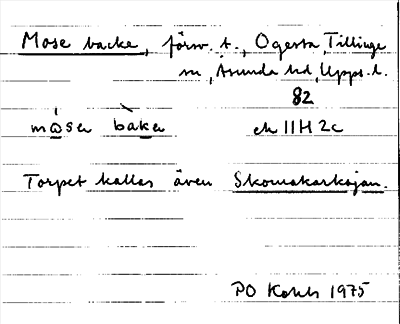 Mose backe, försv. t., Ogesta, Tillinge
sn, Åsunda hd, Upps. l.
82
mɷ̀sɐ bàkɐ ek 11H 2c
Torpet kallas även Skomakarkojan.
PO 1975